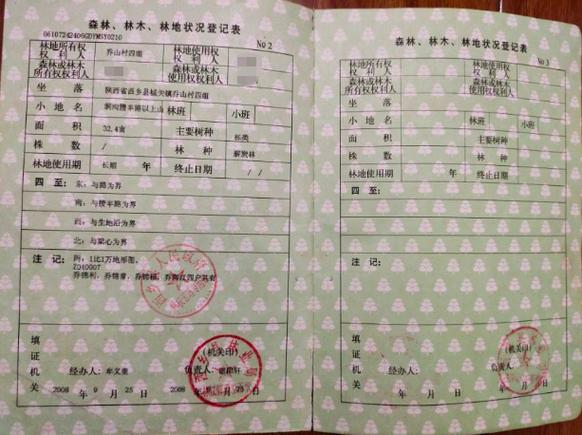 森林、林木、林地状况登记表
No 2
林地所有权权利人
乔山村四组
林地使用权权利人
森林或林木所有权权利人
森林或林木使用权权利人
坐落
陕西省西乡县城关镇乔山村四组
小地名
林班
小班
面积
32.4亩
主要树种
栎类
株数
/
林种
薪炭林
林地使用期
长期
年
终止日期
/ /
四至:
东:与路为界
南:与腰半路为界
西:与生地沿为界
北:与梁心为界
注记:
Z040007
填证机关
(机关印)
经办人:
负责人:
2008 年 9 月 25 日
2008 年 月 日
森林、林木、林地状况登记表
No 3
林地所有权权利人
林地使用权权利人
森林或林木所有权权利人
森林或林木使用权权利人
坐落
小地名
林班
小班
面积
主要树种
株数
林种
林地使用期
年
终止日期
四至:
注记:
填证机关
(机关印)
经办人:
负责人:
年 月 日
年 月 日